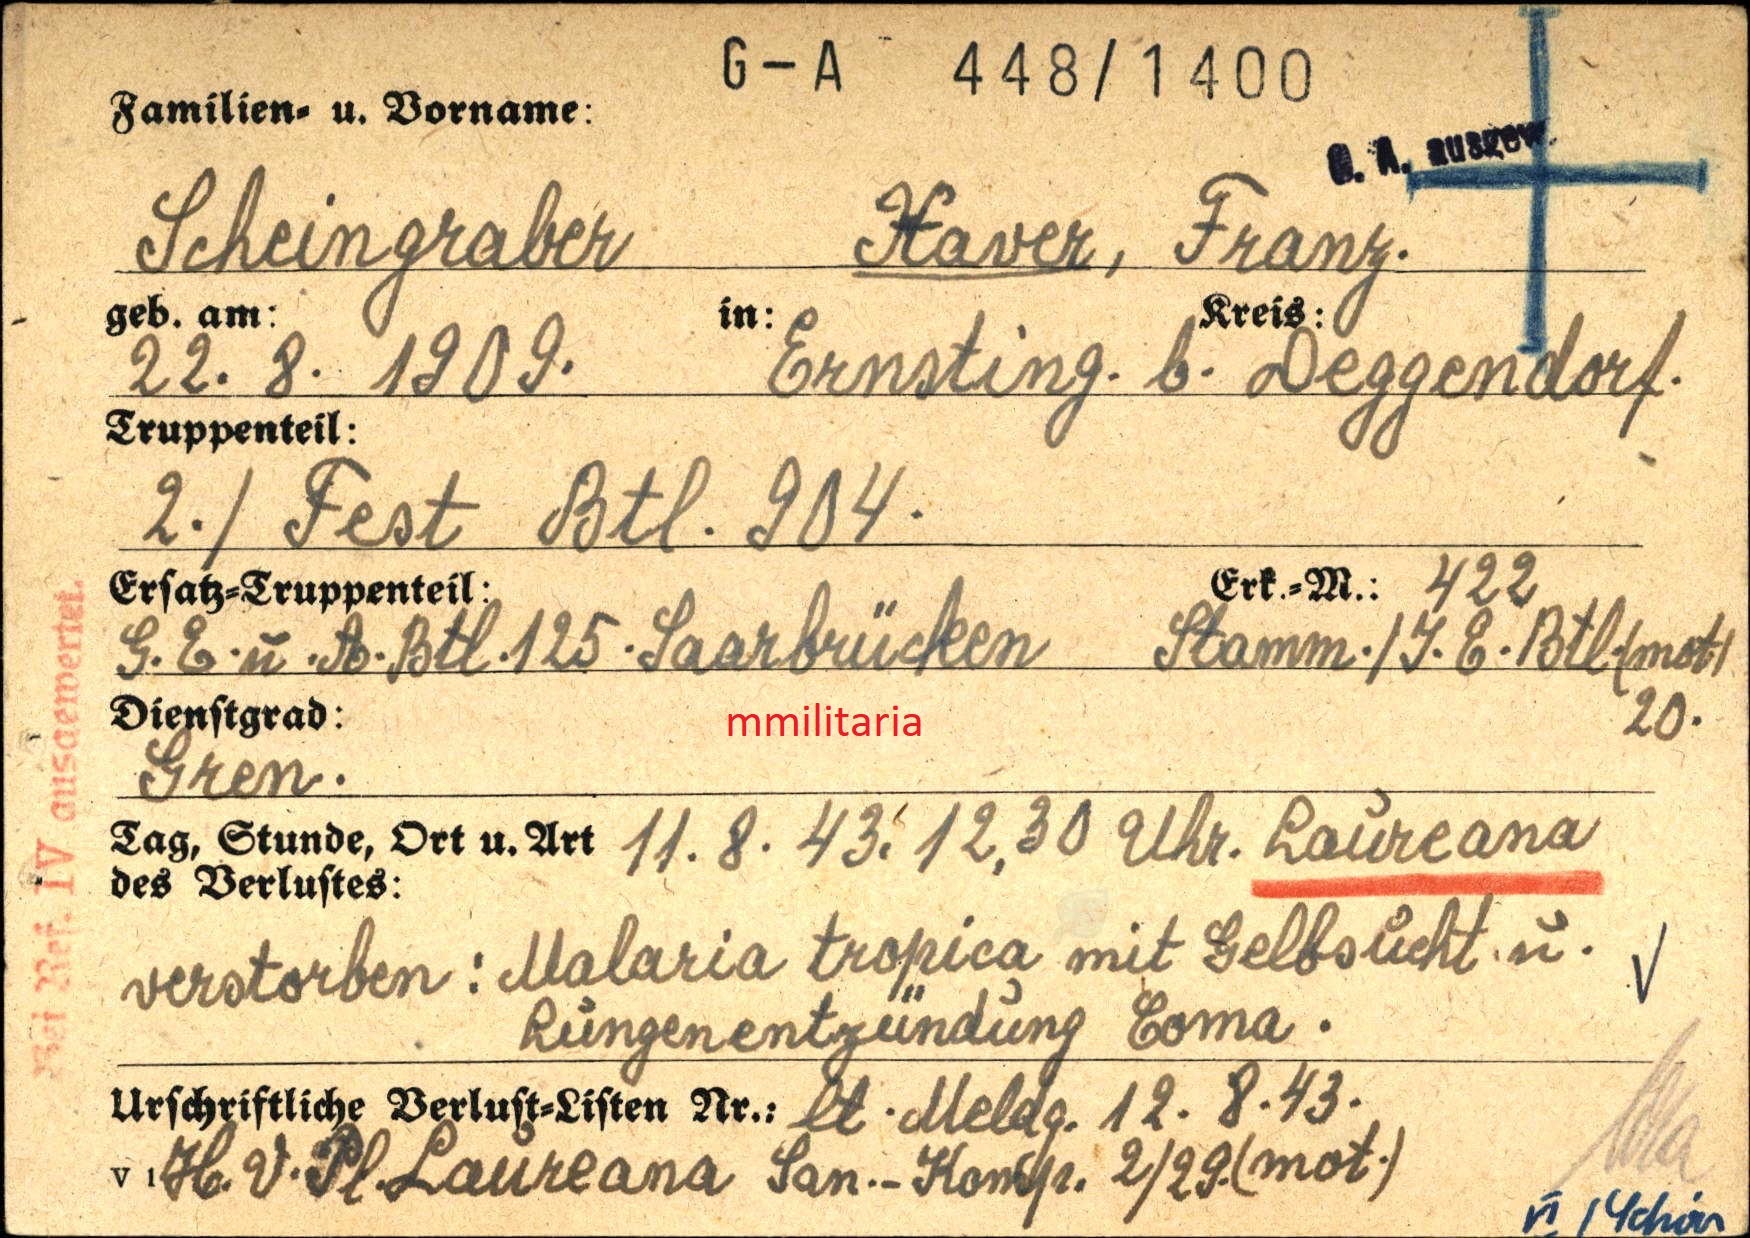 G-A 448/1400
Familien- u. Vorname:
G. A. ausgew.
Scheingraber Xaver, Franz.
geb. am: in: Kreis:
22. 8. 1909. Ernsting. b. Deggendorf.
Truppenteil:
2./ Fest Btl. 904.
Ersatz-Truppenteil: Erk.-M.: 422
G. E. u. A. Btl. 125. Saarbrücken Stamm./J. E. Btl. (mot)
20.
Dienstgrad:
mmilitaria
Gren.
Tag, Stunde, Ort u. Art 11. 8. 43. 12,30 Uhr. Laureana
des Verlustes:
verstorben: Malaria tropica mit Gelbsucht u.
Lungenentzündung Coma.
Urschriftliche Verlust-Listen Nr.: lt. Meldg. 12. 8. 43.
V 1 H. V. Pl. Laureana San.-Komp. 2/29. (mot.)
Bei Ref. IV ausgewertet.
VI /